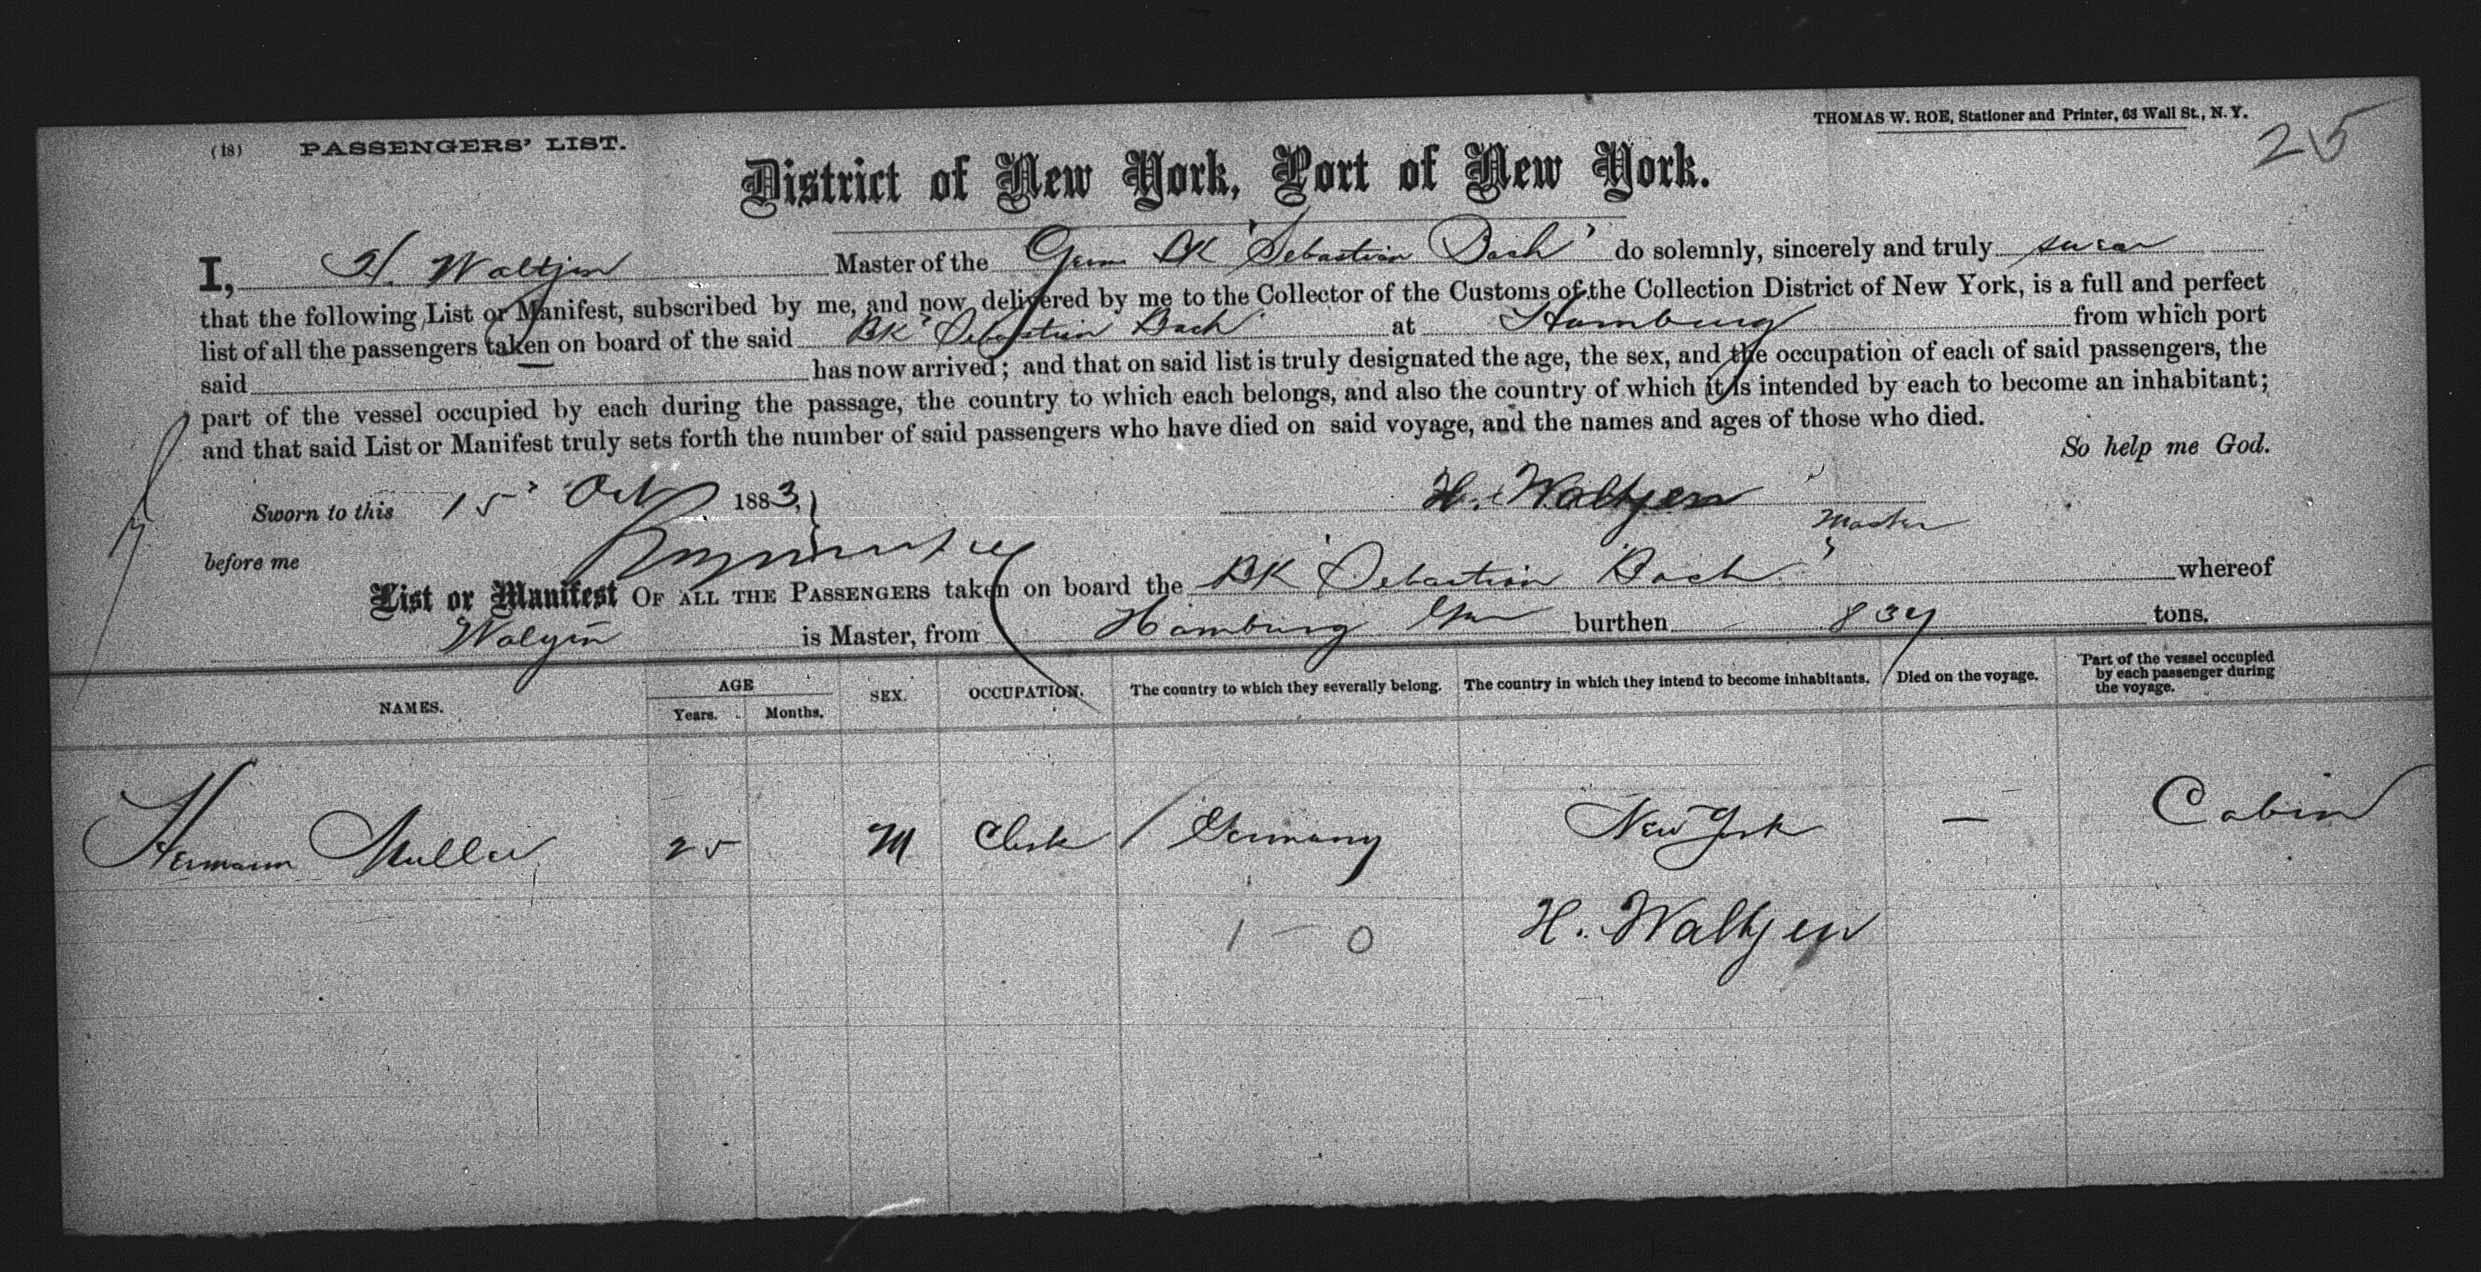 THOMAS W. ROE, Stationer and Printer, 63 Wall St., N. Y.
(18) PASSENGERS' LIST.
25
District of New York, Port of New York.
I, H. Waltjen Master of the Germ BK 'Sebastian Bach' do solemnly, sincerely and truly swear
that the following List or Manifest, subscribed by me, and now delivered by me to the Collector of the Customs of the Collection District of New York, is a full and perfect
list of all the passengers taken on board of the said BK 'Sebastian Bach' at Hamburg from which port
said has now arrived; and that on said list is truly designated the age, the sex, and the occupation of each of said passengers, the
part of the vessel occupied by each during the passage, the country to which each belongs, and also the country of which it is intended by each to become an inhabitant;
and that said List or Manifest truly sets forth the number of said passengers who have died on said voyage, and the names and ages of those who died.
So help me God.
Sworn to this 15' Oct 1883, H. Waltjen
Master
before me
List or Manifest OF ALL THE PASSENGERS taken on board the BK 'Sebastian Bach' whereof
is Master, from Hamburg Ger burthen 834 tons.
NAMES. AGE Years. Months. SEX. OCCUPATION. The country to which they severally belong. The country in which they intend to become inhabitants. Died on the voyage. Part of the vessel occupied by each passenger during the voyage.
Hermann Muller 25 M Clerk / Germany New York — Cabin
1 - 0 H. Waltjen